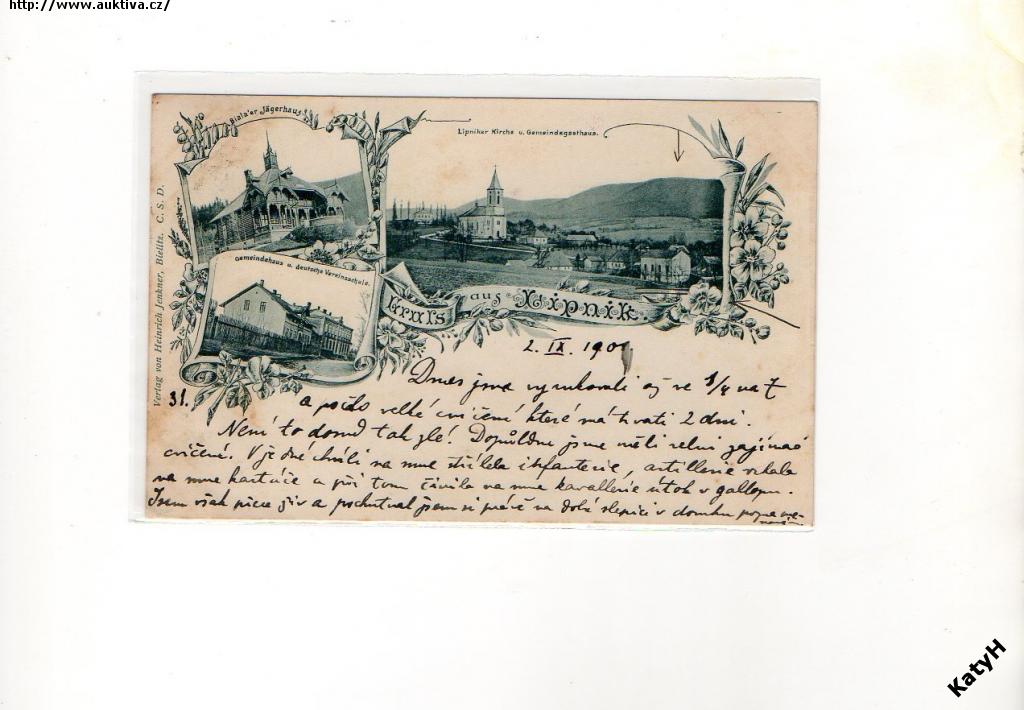 http://www.auktiva.cz/
Biala'er Jägerhaus
Lipniker Kirche u. Gemeindegasthaus.
Gemeindehaus u. deutsche Vereinsschule.
Gruss aus Lipnik.
Verlag von Heinrich Jenkner, Bielitz. C. S. D.
31.
2. IX. 190
Dnes jsme vyrukovali až ve 3/4 na 7
a počalo velké cvičení které má trvati 2 dni.
Není to dosud tak zlé! Dopůldne jsme měli velmi zajímavé
cvičení. V jedné chvíli na mne střílela infanterie, artillerie
na mne kartáče a při tom činila na mne kavallerie útok v gallopu.
Jsem však přece živ a pochutnal jsem si právě na dobé slepici v domku
KatyH